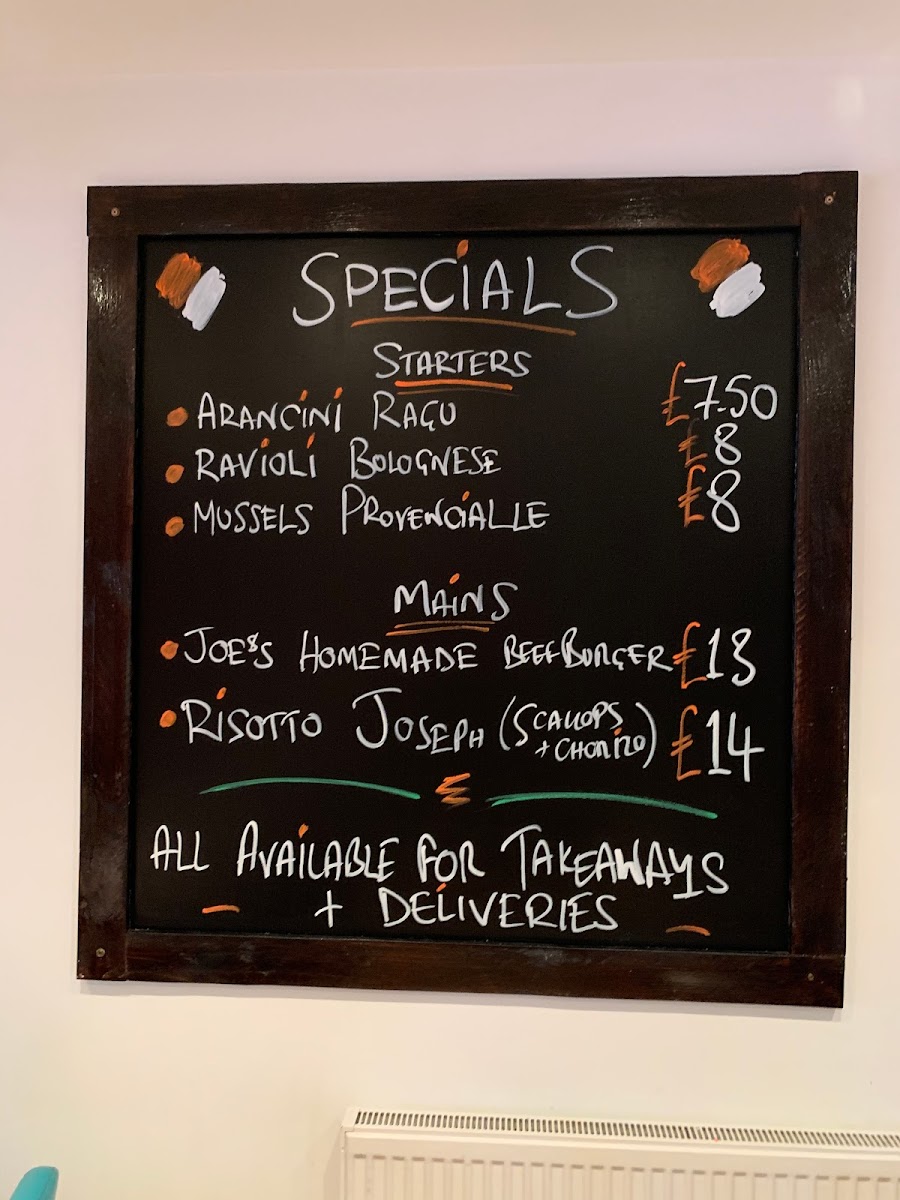 SPECiALS
STARTERS
ARANCiNi RAGU £7.50
RAViOLi BOLOGNESE £8
MUSSELS PROVENCiALLE £8
MAiNS
JOE'S HOMEMADE BEEFBURGER £13
RiSOTTO JOSEPH (SCALLOPS + CHORiZO) £14
ALL AVAiLABLE FOR TAKEAWAYS
+ DELiVERIES